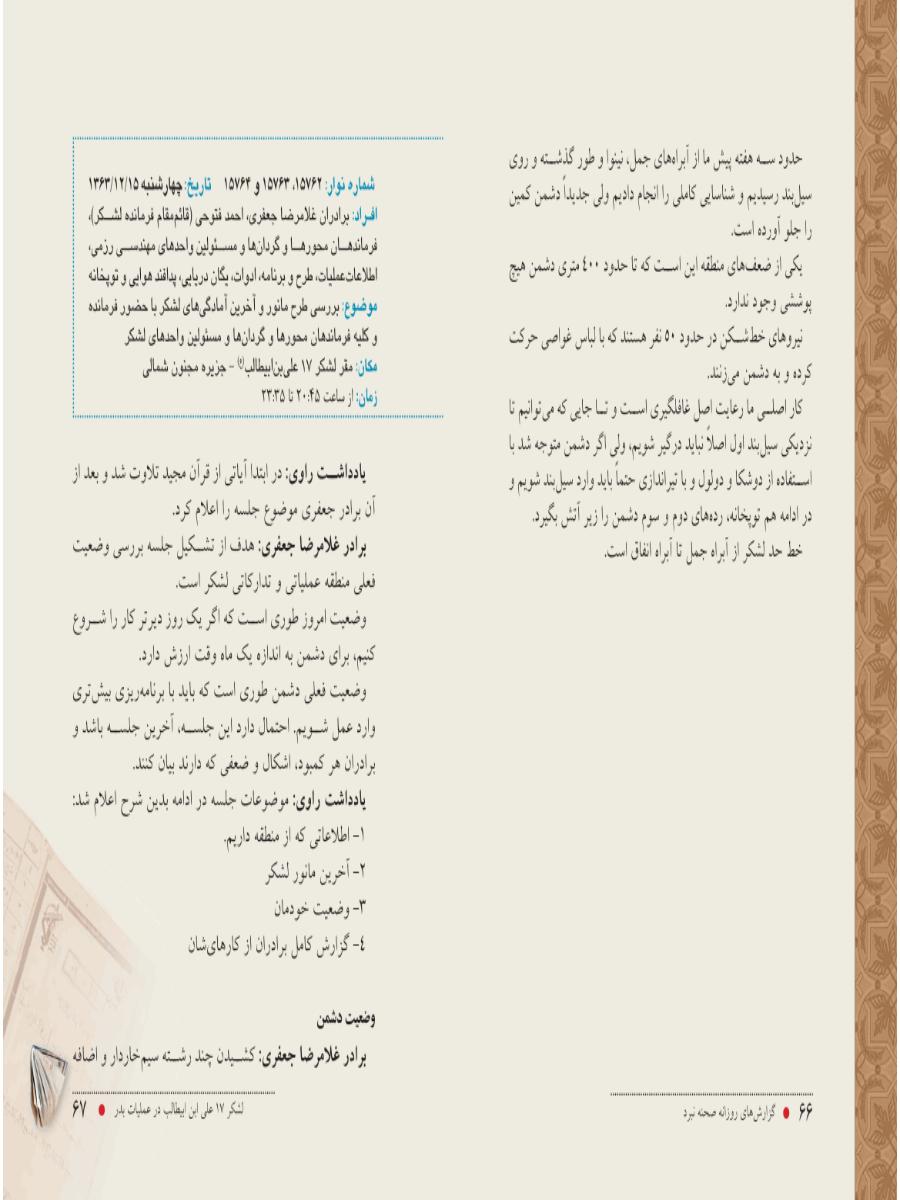 حدود سه هفته پیش ما از آبراه‌های جمل، نینوا و طور گذشته و روی
سیل‌بند رسیدیم و شناسایی کاملی را انجام دادیم ولی جدیداً دشمن کمین
را جلو آورده است.
یکی از ضعف‌های منطقه این است که تا حدود ۴۰۰ متری دشمن هیچ
پوششی وجود ندارد.
نیروهای خط‌شکن در حدود ۵۰ نفر هستند که با لباس غواصی حرکت
کرده و به دشمن می‌زنند.
کار اصلی ما رعایت اصل غافلگیری است و تا جایی که می‌توانیم تا
نزدیکی سیل‌بند اول اصلاً نباید درگیر شویم، ولی اگر دشمن متوجه شد با
استفاده از دوشکا و دولول و با تیراندازی حتماً باید وارد سیل‌بند شویم و
در ادامه هم توپخانه، رده‌های دوم و سوم دشمن را زیر آتش بگیرد.
خط حد لشکر از آبراه جمل تا آبراه انفاق است.
۶۶ ● گزارش‌های روزانه صحنه نبرد
شماره نوار: ۱۵۷۶۲، ۱۵۷۶۳ و ۱۵۷۶۴ تاریخ: چهارشنبه ۱۳۶۳/۱۲/۱۵
افراد: برادران غلامرضا جعفری، احمد فتوحی (قائم‌مقام فرمانده لشکر)،
فرماندهان محورها و گردان‌ها و مسئولین واحدهای مهندسی رزمی،
اطلاعات‌عملیات، طرح و برنامه، ادوات، یگان دریایی، پدافند هوایی و توپخانه
موضوع: بررسی طرح مانور و آخرین آمادگی‌های لشکر با حضور فرمانده
و کلیه فرماندهان محورها و گردان‌ها و مسئولین واحدهای لشکر
مکان: مقر لشکر ۱۷ علی‌بن‌ابیطالب(ع) - جزیره مجنون شمالی
زمان: از ساعت ۲۰:۴۵ تا ۲۳:۳۵
یادداشت راوی: در ابتدا آیاتی از قرآن مجید تلاوت شد و بعد از
آن برادر جعفری موضوع جلسه را اعلام کرد.
برادر غلامرضا جعفری: هدف از تشکیل جلسه بررسی وضعیت
فعلی منطقه عملیاتی و تدارکاتی لشکر است.
وضعیت امروز طوری است که اگر یک روز دیرتر کار را شروع
کنیم، برای دشمن به اندازه یک ماه وقت ارزش دارد.
وضعیت فعلی دشمن طوری است که باید با برنامه‌ریزی بیش‌تری
وارد عمل شویم. احتمال دارد این جلسه، آخرین جلسه باشد و
برادران هر کمبود، اشکال و ضعفی که دارند بیان کنند.
یادداشت راوی: موضوعات جلسه در ادامه بدین شرح اعلام شد:
۱- اطلاعاتی که از منطقه داریم.
۲- آخرین مانور لشکر
۳- وضعیت خودمان
۴- گزارش کامل برادران از کارهای‌شان
وضعیت دشمن
برادر غلامرضا جعفری: کشیدن چند رشته سیم‌خاردار و اضافه
لشکر ۱۷ علی ابن ابیطالب در عملیات بدر ● ۶۷